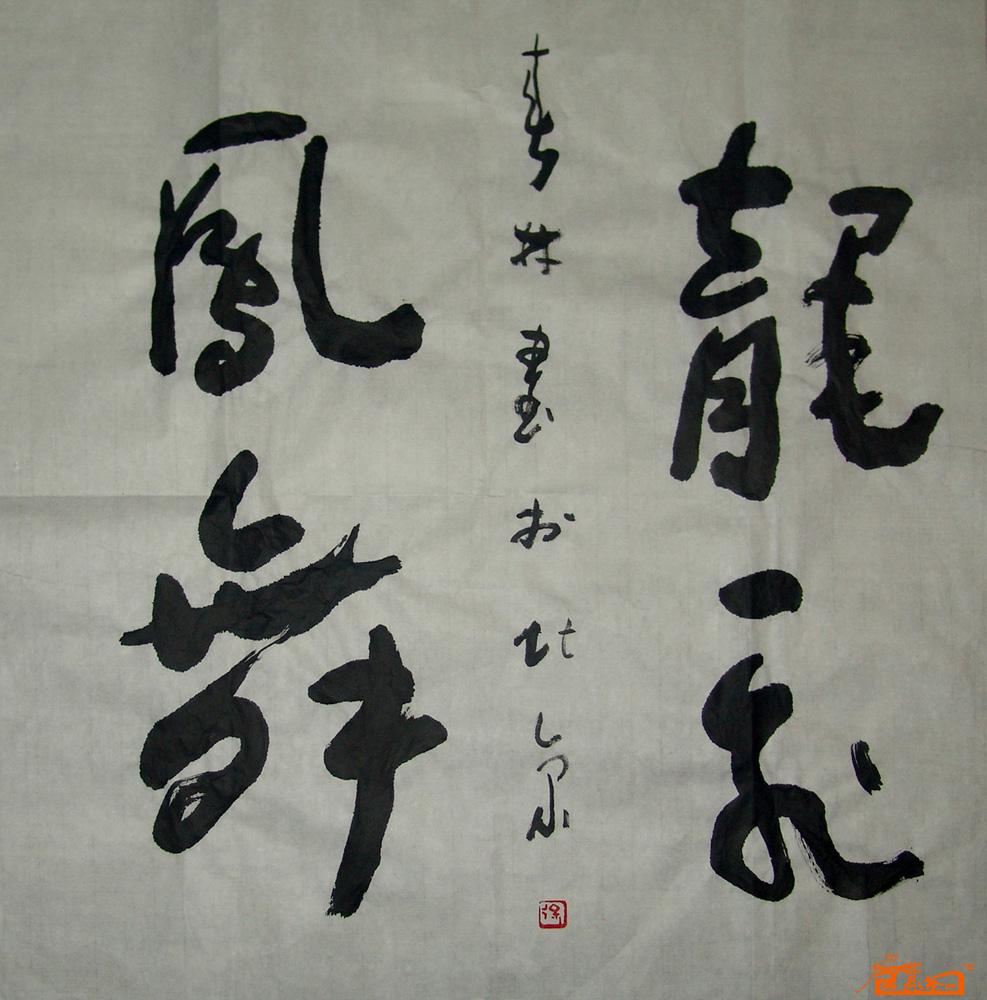 龍飛
春林書於北京
鳳舞